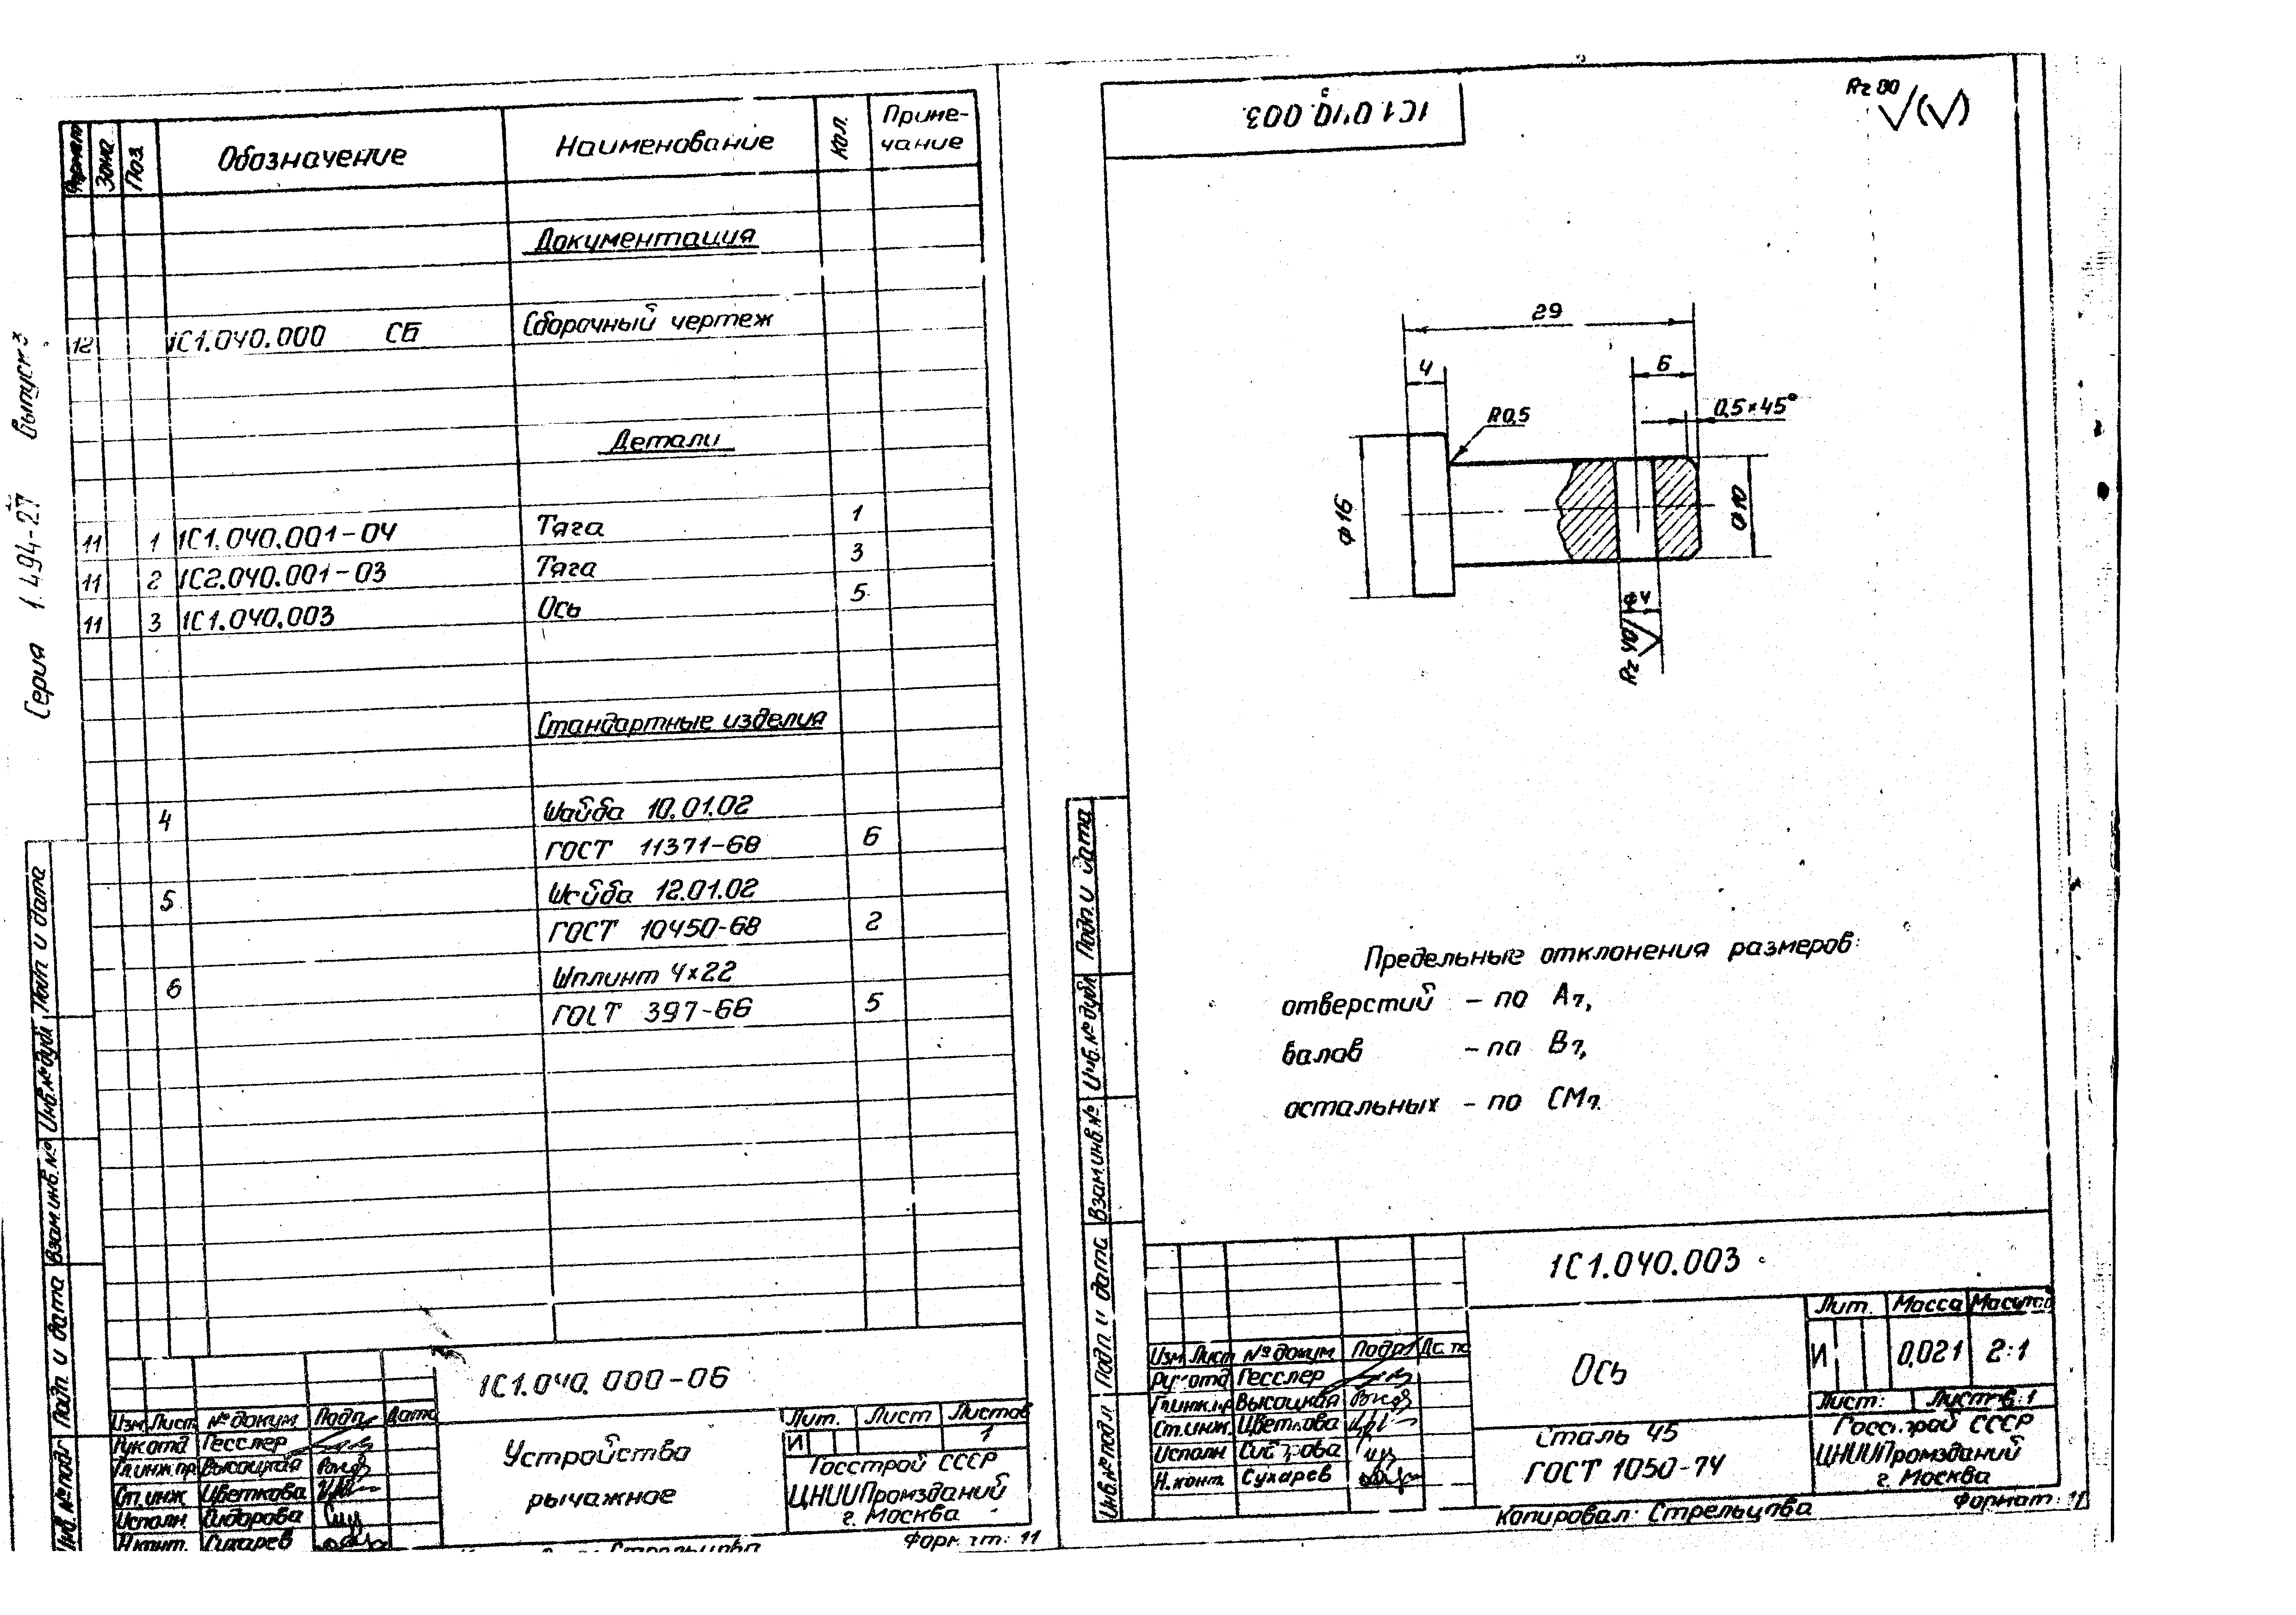 Серия 1.494-27 Выпуск 3
Формат Зона Поз. Обозначение Наименование Кол. Приме-
чание
Документация
12 1С1.040.000 СБ Сборочный чертеж
Детали
11 1 1С1.040.001-04 Тяга 1
11 2 1С2.040.001-03 Тяга 3
11 3 1С1.040.003 Ось 5
Стандартные изделия
4 Шайба 10.01.02
ГОСТ 11371-68 6
5 Шайба 12.01.02
ГОСТ 10450-68 2
6 Шплинт 4×22
ГОСТ 397-66 5
Подп и дата
Инв.№ дубл
Взам.инв.№
Подп и дата
Инв.№ подл
1С1.040.000-06
Изм. Лист № докум Подп. Дата
Рук отд Гесслер
Гл.инж.пр Высоцкая
Ст.инж Цветкова
Исполн Сидорова
Н.конт. Сухарев
Устройства
рычажное
Лит. Лист Листов
И 1
Госстрой СССР
ЦНИИПромзданий
г. Москва
Стрельцова
Формат: 11
1С1.040.003
Rz 80
29
4
6
R0,5
0,5×45°
Ф16
Ф10
Ф4
Rz 40
Предельные отклонения размеров:
отверстий – по А7,
валов – по В7,
остальных – по СМ7.
Подп. и дата
Инв.№ дубл
Взам.инв.№
Подп. и дата
Инв.№ подл
1С1.040.003
Изм Лист № докум Подп
Рук отд Гесслер
Гл.инж.пр Высоцкая
Ст.инж. Цветкова
Исполн Сидорова
Н.конт. Сухарев
Ось
Лит. Масса Масштаб
И 0,021 2:1
Лист: Листов: 1
Сталь 45
ГОСТ 1050-74
Госстрой СССР
ЦНИИПромзданий
г. Москва
Копировал: Стрельцова
Формат: 11